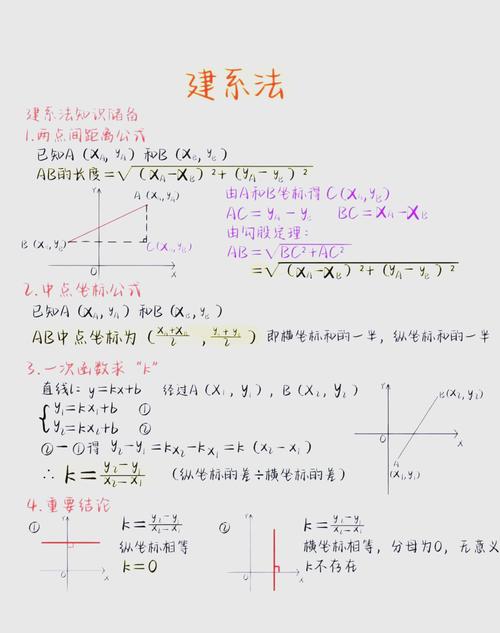 建系法
建系法知识储备
1.两点间距离公式
已知A (x_A, y_A) 和B (x_B, y_B)
AB的长度=√(x_A-x_B)²+(y_A-y_B)²
y
A (x_A, y_A)
B (x_B, y_B)
C(x_A, y_B)
O
x
由A和B坐标得C(x_A, y_B)
AC=y_A-y_B BC=x_A-x_B
由勾股定理:
AB=√BC²+AC²
=√(x_A-x_B)²+(y_A-y_B)²
2.中点坐标公式
已知A (x_A, y_A) 和B (x_B, y_B)
即横坐标和的一半, 纵坐标和的一半
3.一次函数求"k"
直线l: y=kx+b 经过A (x₁, y₁), B (x₂, y₂)
y₁=kx₁+b ①
y₂=kx₂+b ②
②-①得 y₂-y₁=kx₂-kx₁=k (x₂-x₁)
∴ k=(y₂-y₁)/(x₂-x₁) (纵坐标的差÷横坐标的差)
y
B(x₂, y₂)
O
x
A
(x₁, y₁)
4.重要结论
①
y
O
x
k=(y₂-y₁)/(x₂-x₁)
纵坐标相等
k=0
②
y
O
x
k=(y₂-y₁)/(x₂-x₁)
横坐标相等, 分母为0, 无意义
k不存在